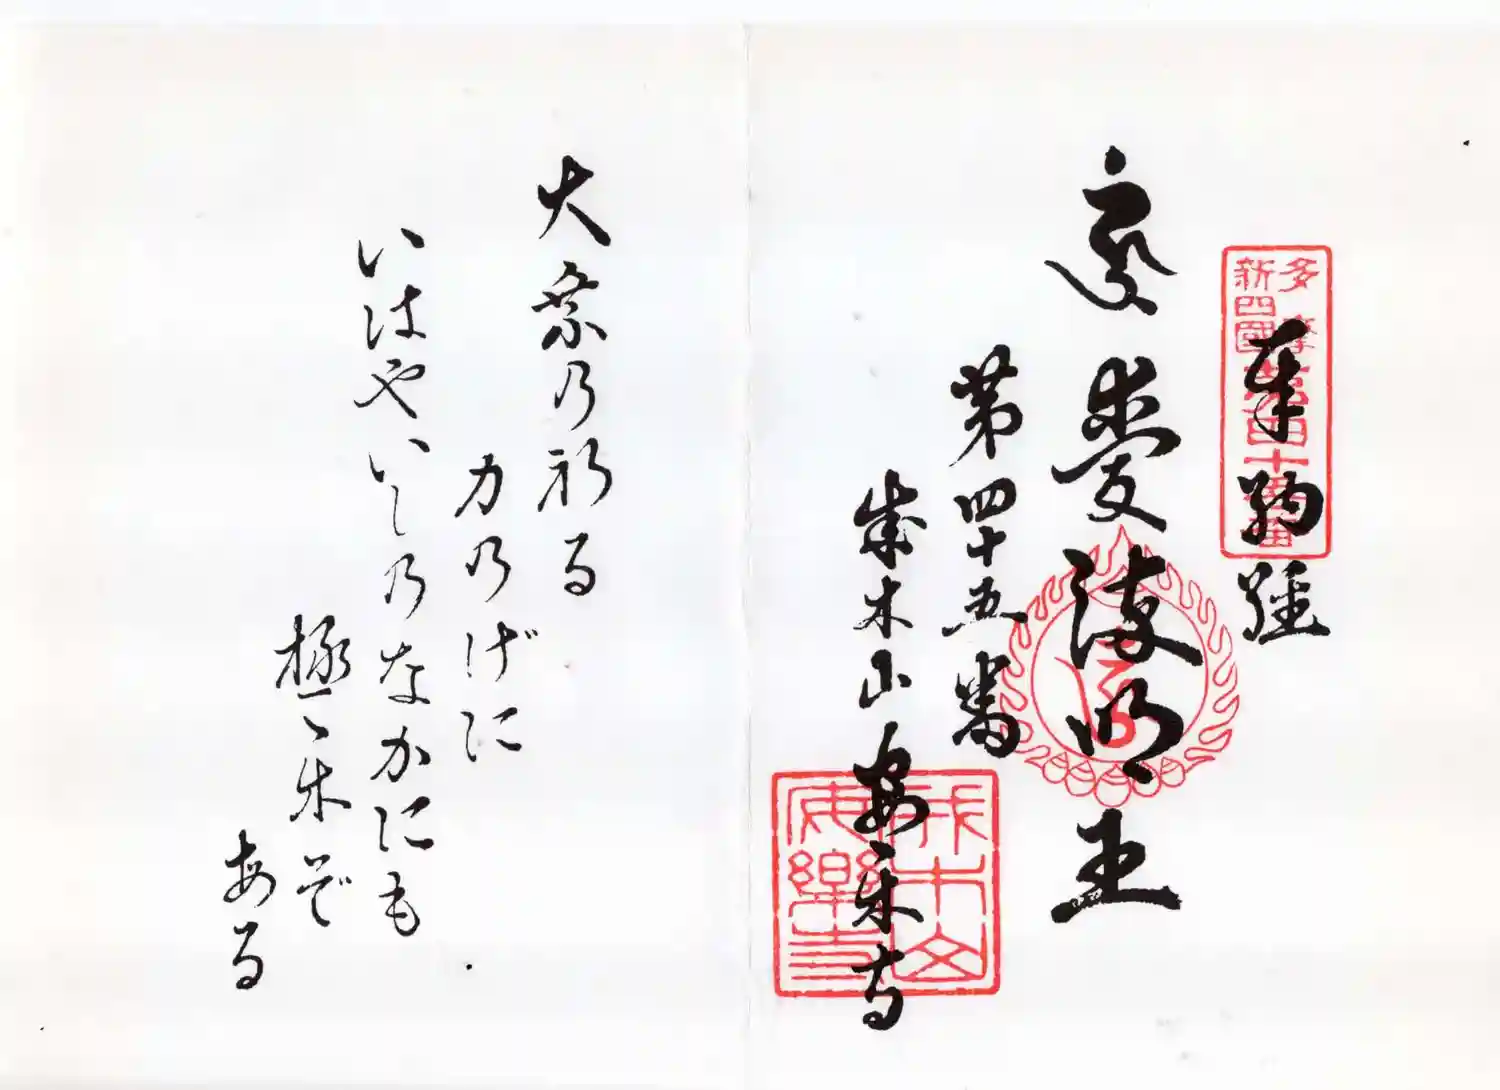 多摩
新四國
第四十五番
奉納経
愛染明王
第四十五番
成木山安楽寺
成木山
安樂寺
大聖乃祈る
力乃げに
いはやいし乃なかにも
極楽ぞ
ある